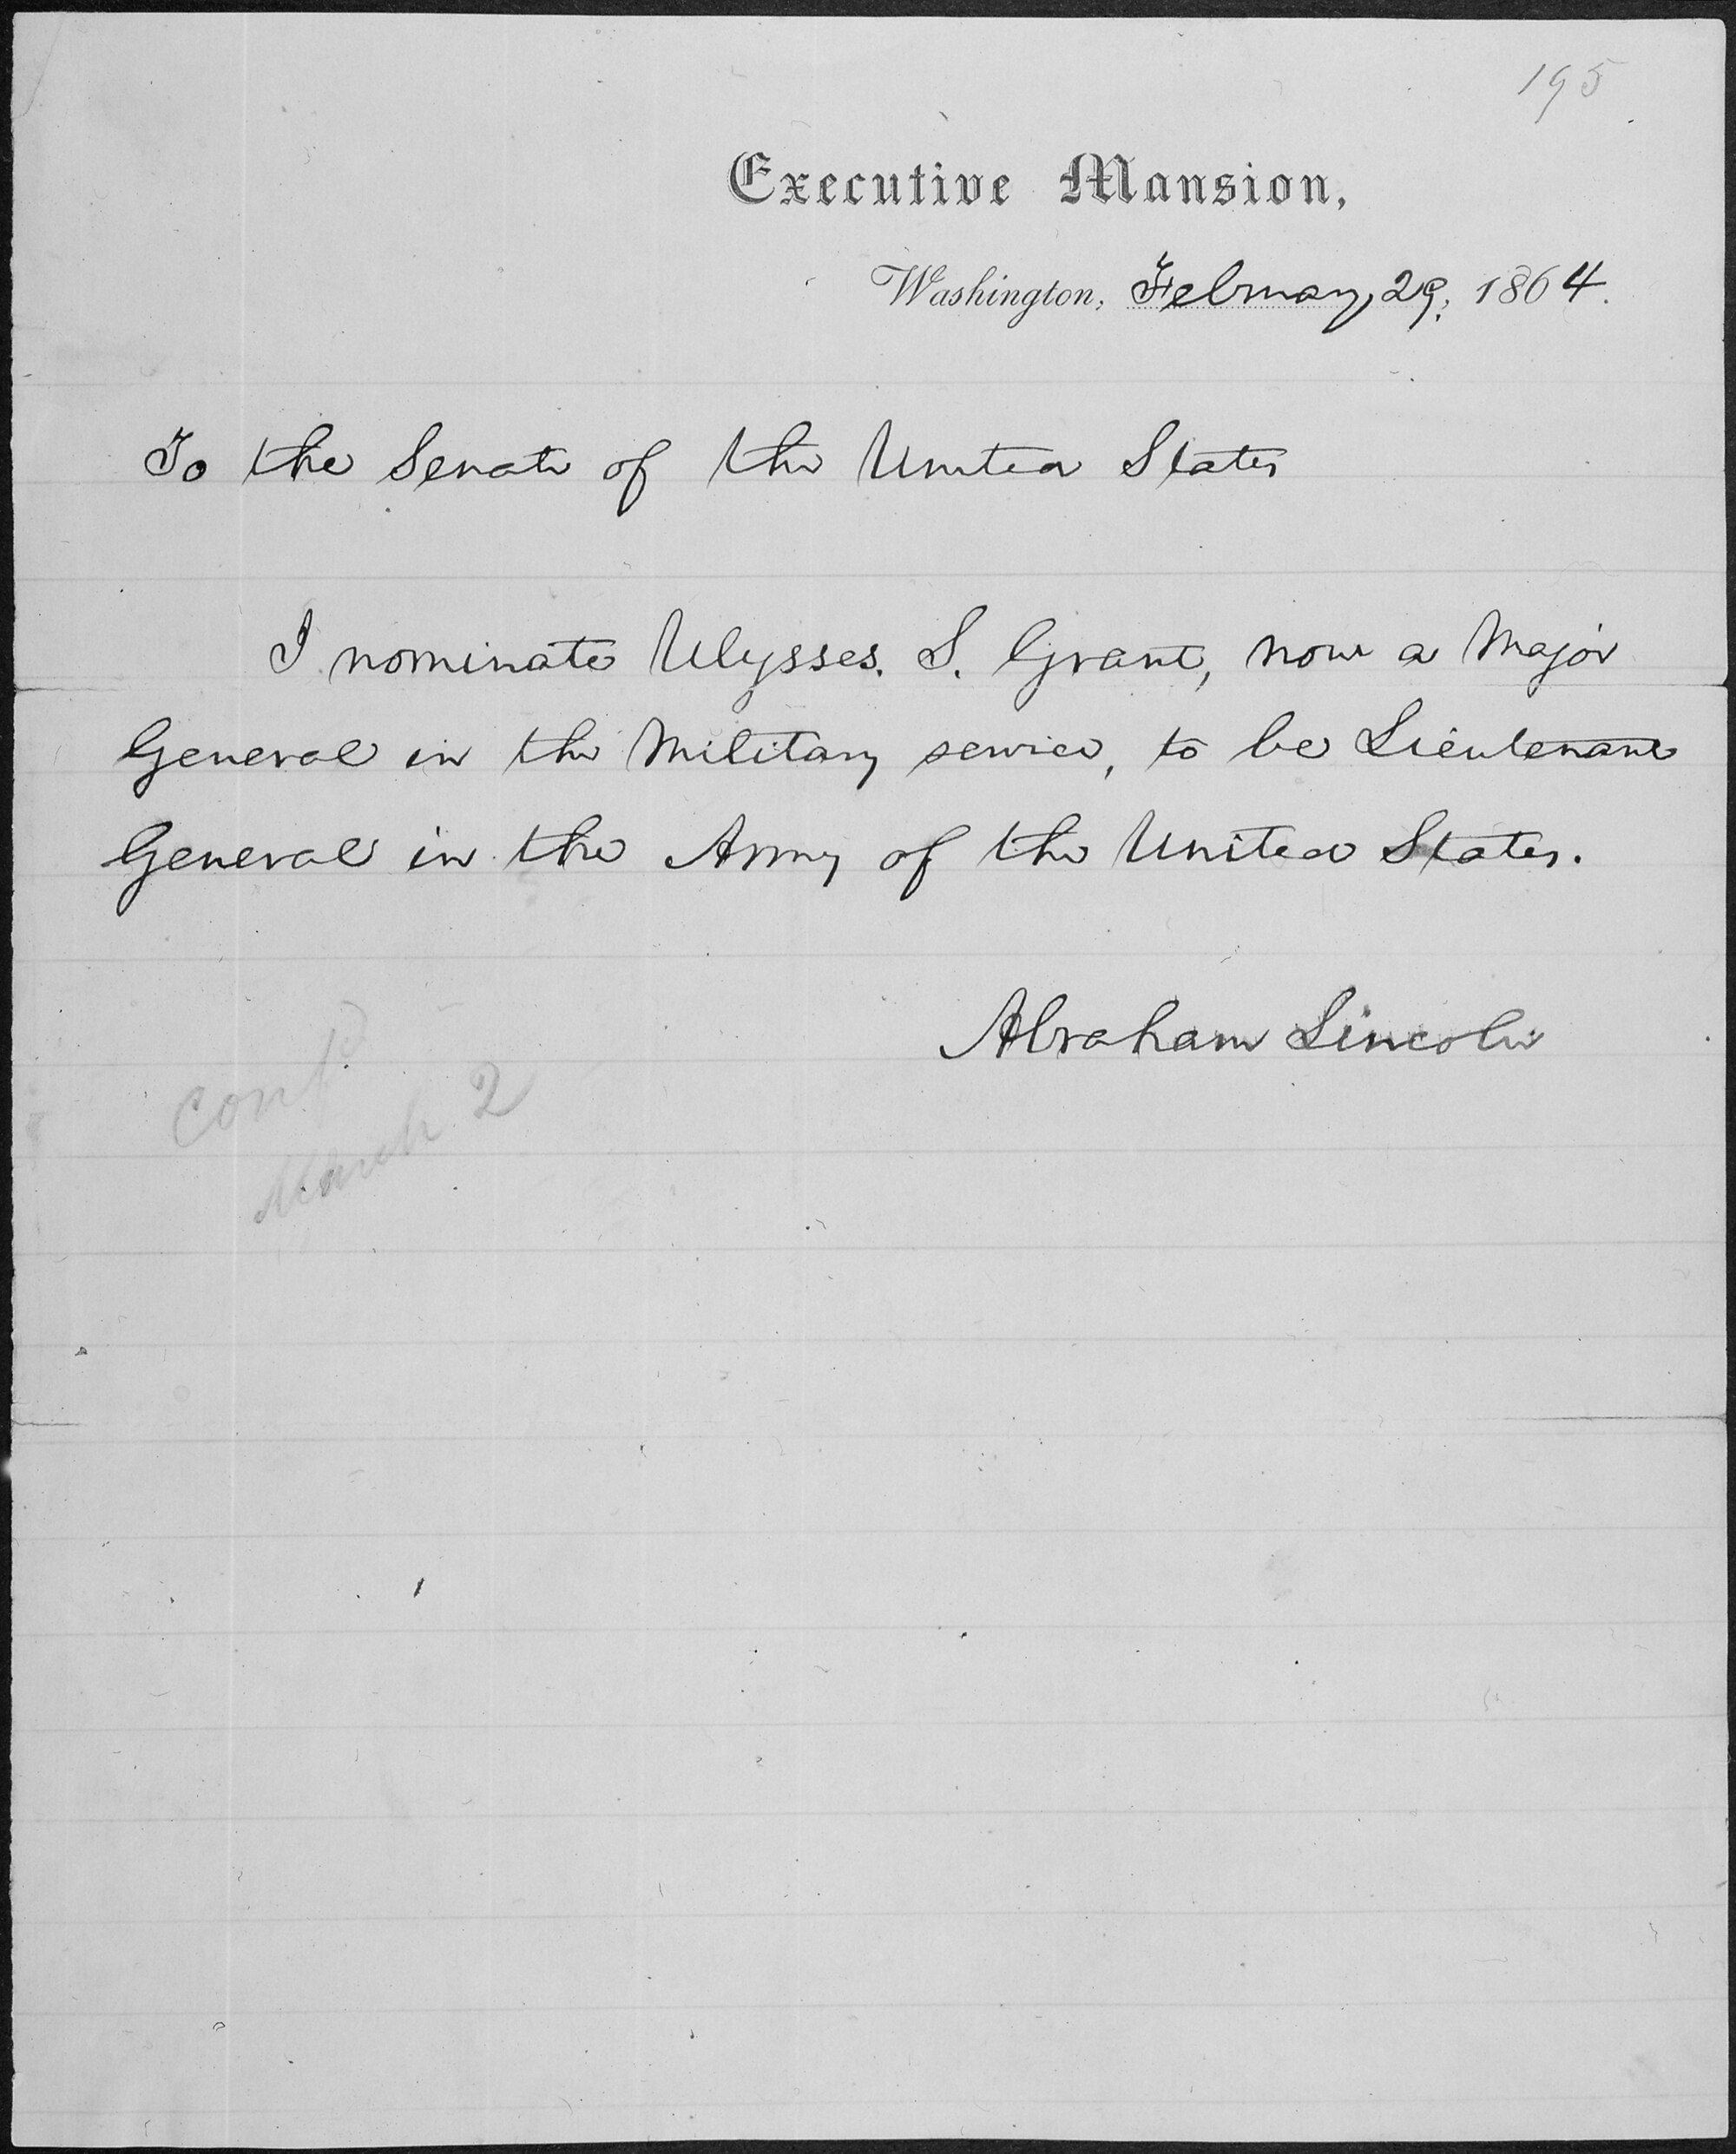 195
Executive Mansion,
Washington, February 29, 1864.
To the Senate of the United States
I nominate Ulysses. S. Grant, now a Major
General in the Military service, to be Lieutenant
General in the Army of the United States.
Abraham Lincoln
Confd
March 2